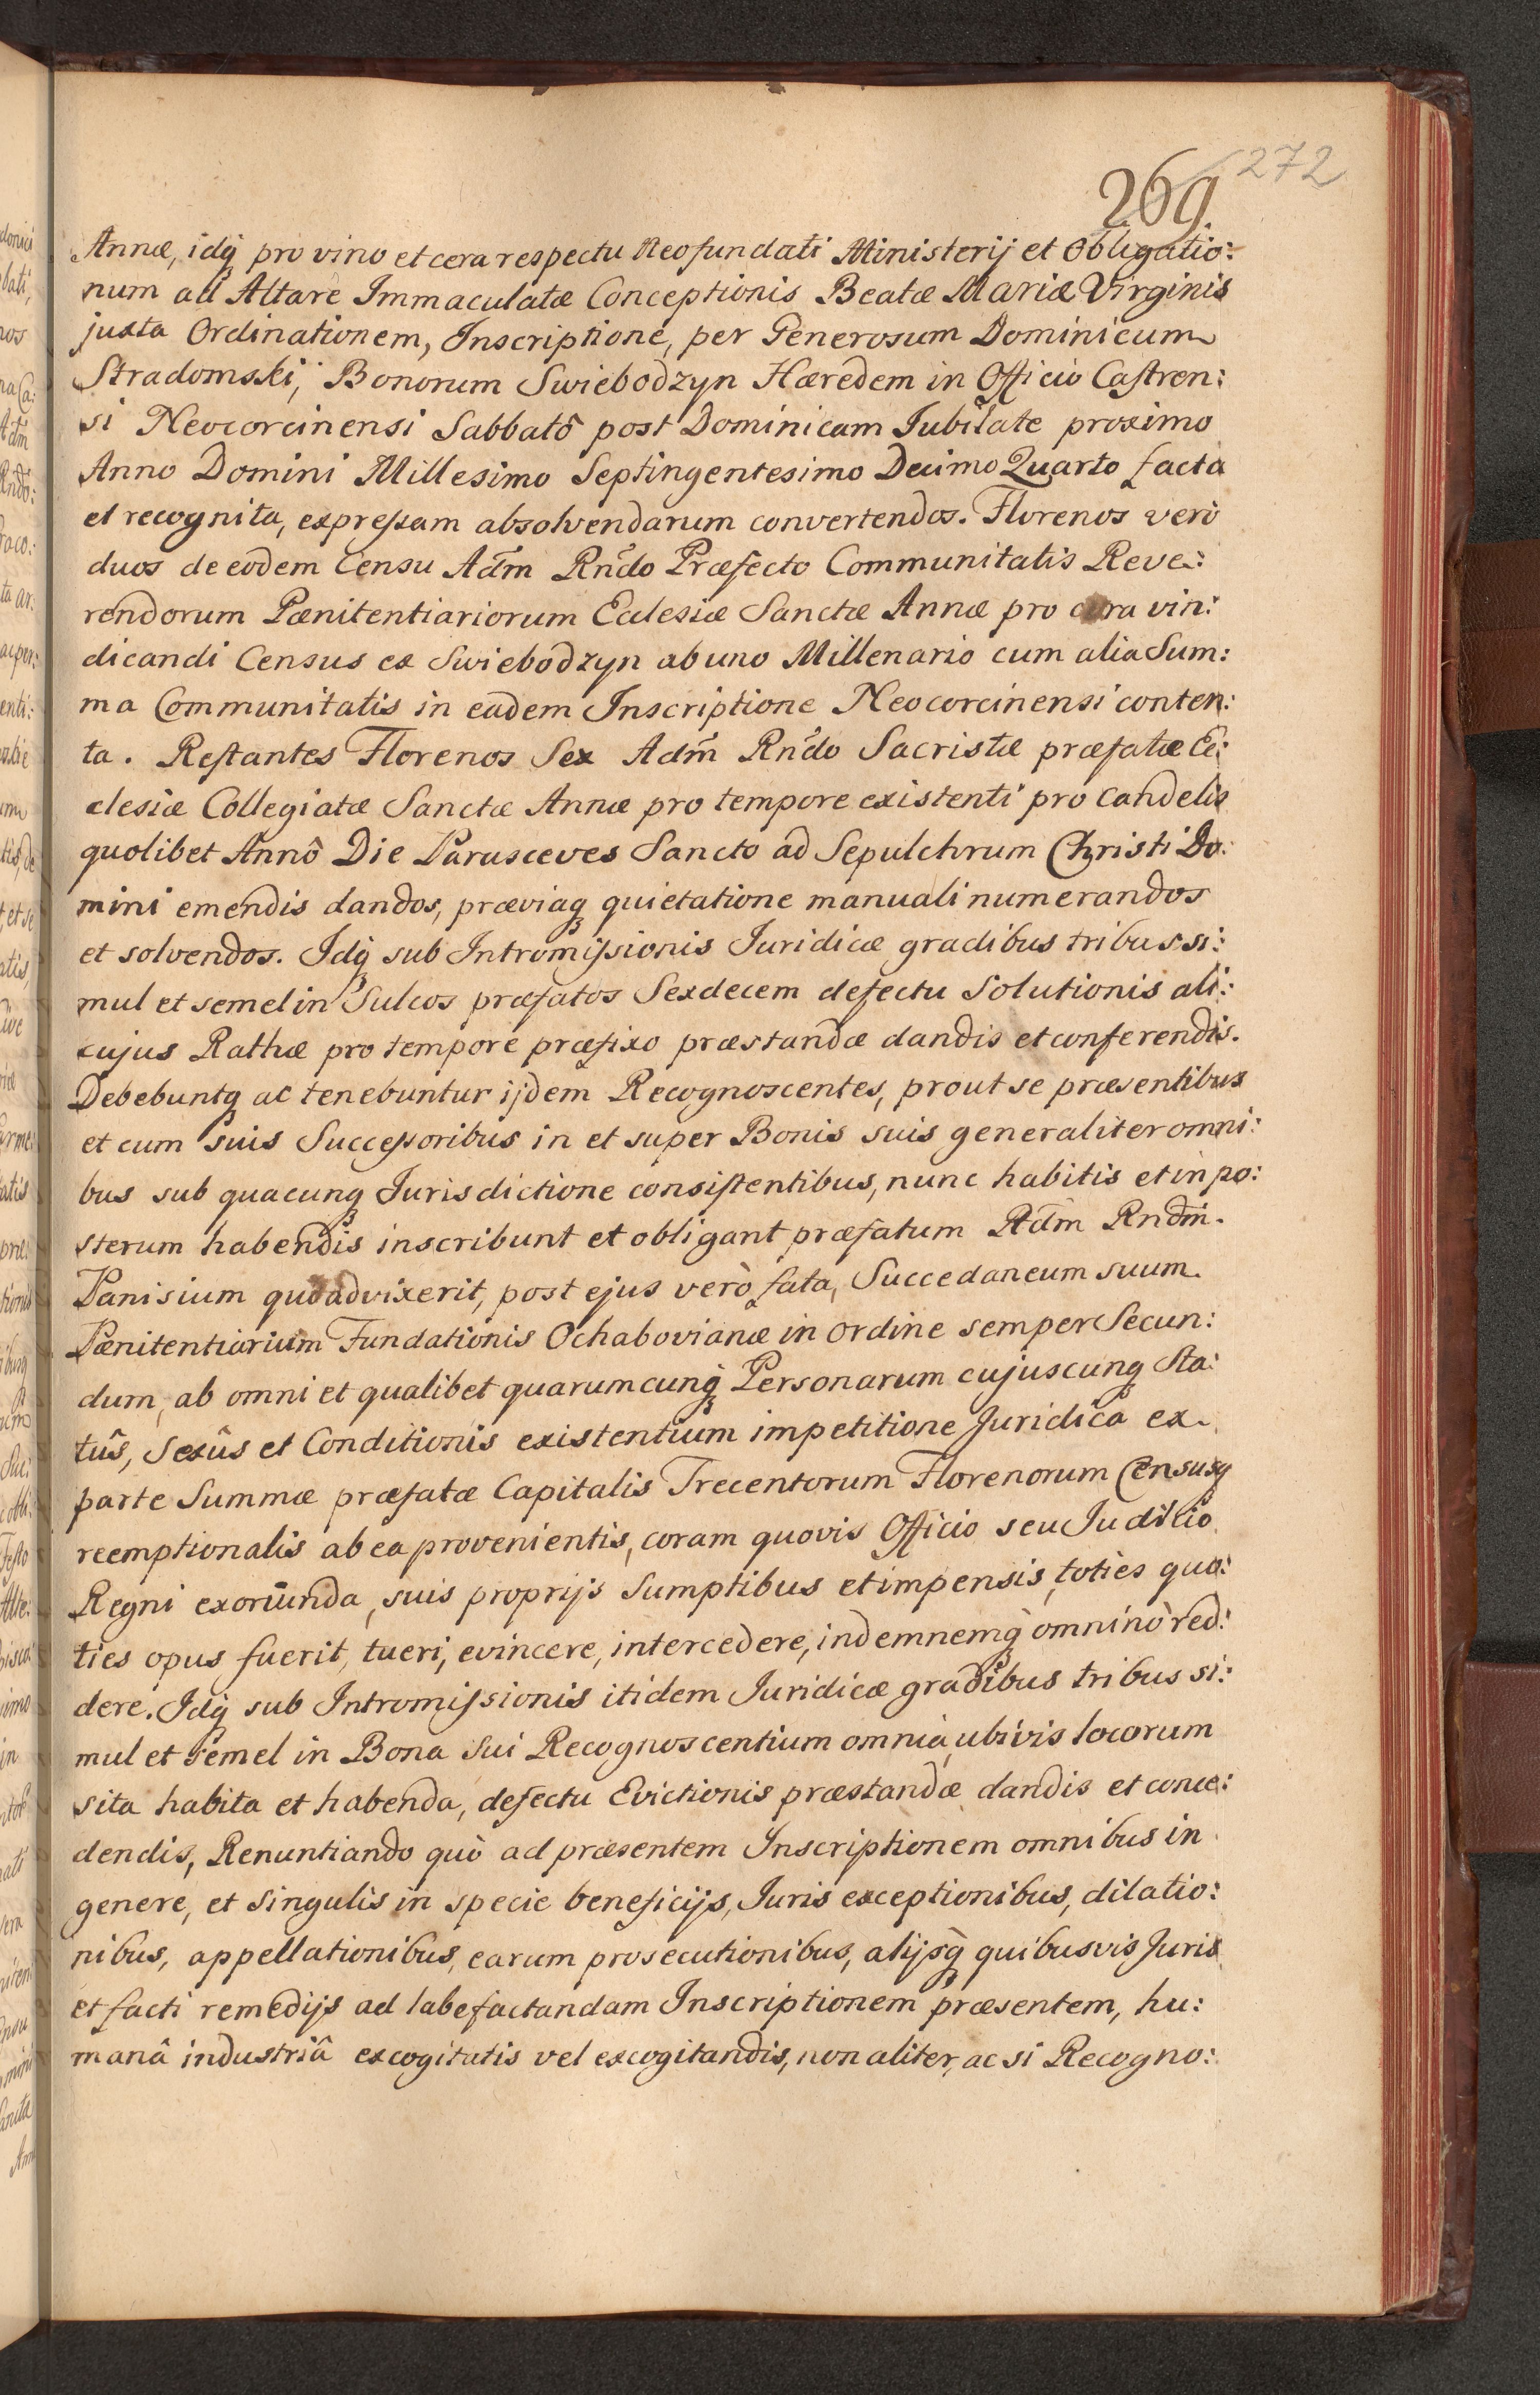 269. 272
Annæ, idq́ pro vino et cera respectu Neofundati Ministerij et Obligatio:
num ad Altare Immaculatæ Conceptionis Beatæ Mariæ Virginis
juxta Ordinationem, Inscriptione, per Generosum Dominicum
Stradomski, Bonorum Swiebodzyn Hæredem in Officio Castren:
si Neocorcinensi Sabbatô post Dominicam Jubilate proximo
Anno Domini Millesimo Septingentesimo Decimo Quarto facta
et recognita, expressam absolvendarum convertendos. Florenos verò
duos de eodem Censu Adm̃ Rndo Præfecto Communitatis Reve:
rendorum Pænitentiariorum Ecclesiæ Sanctæ Annæ pro cura vin:
dicandi Census ex Swiebodzyn ab uno Millenario cum alia Sum:
ma Communitatis in eadem Inscriptione Neocorcinensi conten:
ta. Restantes Florenos Sex Adm̃ Rndo Sacristæ præfatæ Ec:
clesiæ Collegiatæ Sanctæ Annæ pro tempore existenti pro candelis
quolibet Annô Die Parasceves Sancto ad Sepulchrum Christi Do:
mini emendis dandos, præviaq quietatione manuali numerandos
et solvendos. Idq́ sub Intromissionis Juridicæ gradibus tribus si:
mul et semel in Sulcos præfatos Sexdecem defectu Solutionis ali:
cujus Rathæ pro tempore præfixo præstandæ dandis et conferendis.
Debebuntq ac tenebuntur ijdem Recognoscentes, prout se præsentibus
et cum suis Successoribus in et super Bonis suis generaliter omni:
bus sub quacunq Jurisdictione consistentibus, nunc habitis et in po:
sterum habendis inscribunt et obligant præfatum Adm̃ Rndm̃.
Panisium quoadvixerit, post ejus verò fata, Succedaneum suum.
Pænitentiarium Fundationis Ochabovianæ in ordine semper Secun:
dum, ab omni et qualibet quarumcunq́ Personarum cujuscunq Sta:
tûs, Sexûs et Conditionis existentium impetitione Juridica ex
parte Summæ præfatæ Capitalis Trecentorum Florenorum Censusq
reemptionalis ab ea provenientis, coram quovis Officio seu Judicio
Regni exoriunda, suis proprijs Sumptibus et impensis, toties quo:
ties opus fuerit, tueri, evincere, intercedere, indemnemq́ omninò red:
dere. Idq́ sub Intromissionis itidem Juridicæ gradibus tribus si:
mul et semel in Bona sui Recognoscentium omnia, ubivis locorum
sita habita et habenda, defectu Evictionis præstandæ dandis et conce:
dendis, Renuntiando quò ad præsentem Inscriptionem omnibus in
genere, et singulis in specie beneficijs, Juris exceptionibus, dilatio:
nibus, appellationibus, earum prosecutionibus, alijsq́ quibusvis Juris
et facti remedijs ad labefactandam Inscriptionem præsentem, hu:
manâ industriâ excogitatis vel excogitandis, non aliter, ac si Recogno: